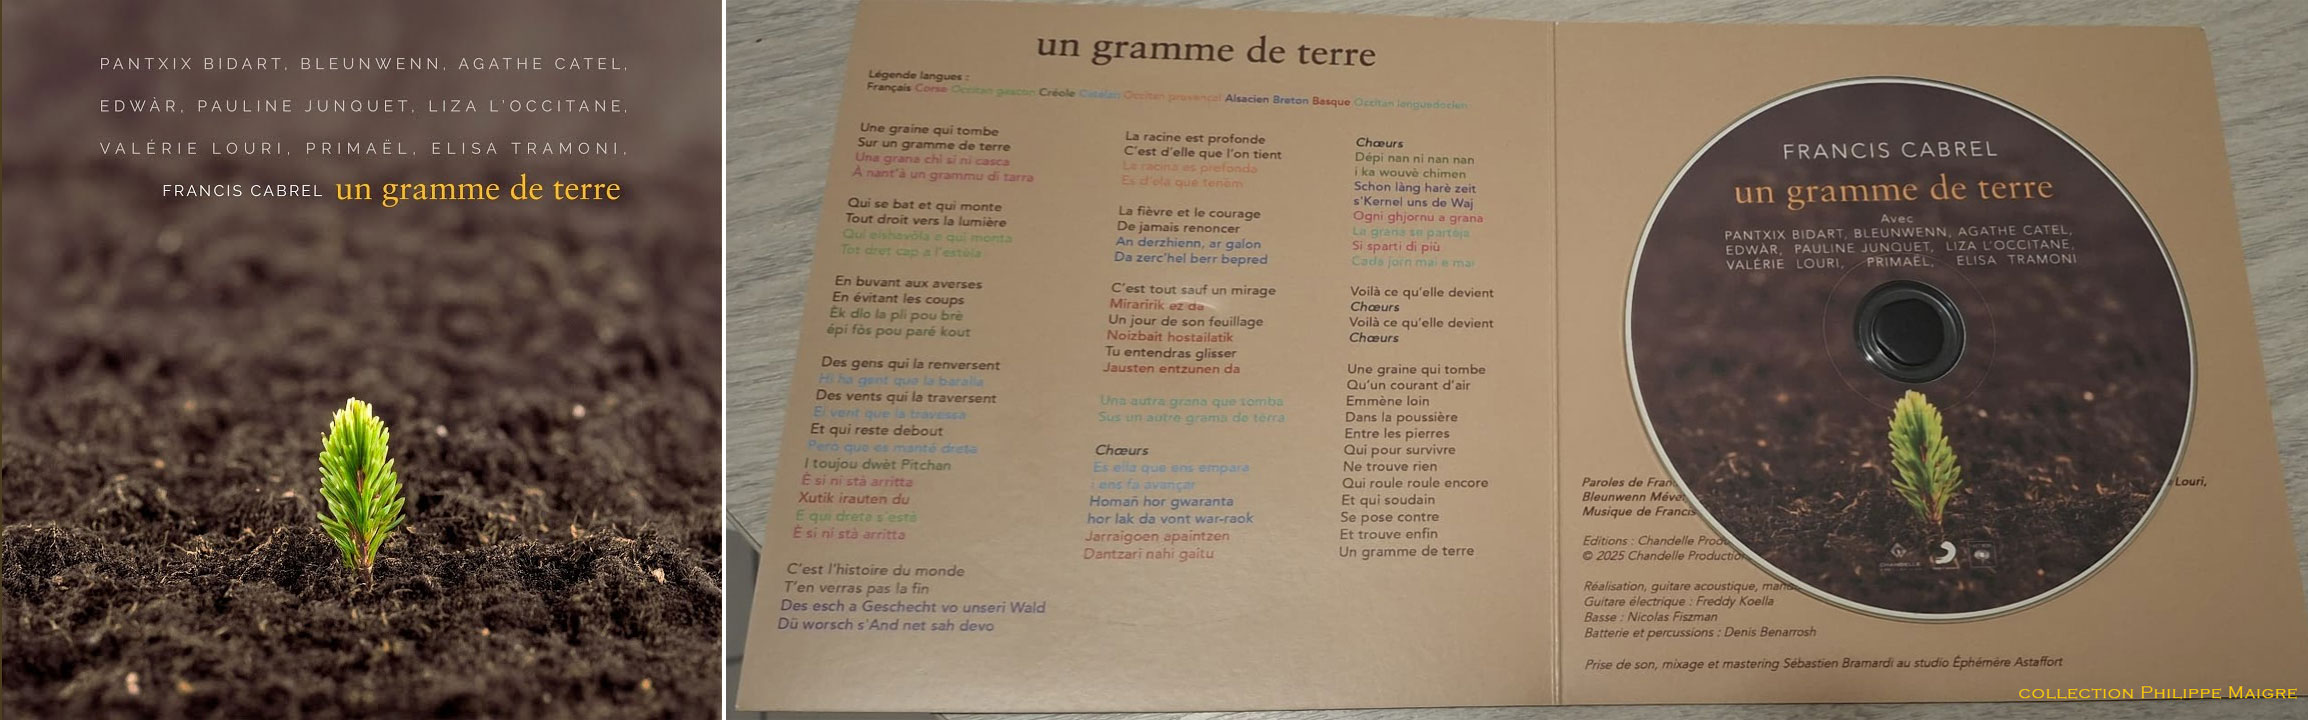 PANTXIX BIDART, BLEUNWENN, AGATHE CATEL,
EDWÀR, PAULINE JUNQUET, LIZA L'OCCITANE,
VALÉRIE LOURI, PRIMAËL, ELISA TRAMONI,
FRANCIS CABREL un gramme de terre
un gramme de terre
Légende langues :
Français Corse Occitan gascon Créole Catalan Occitan provençal Alsacien Breton Basque Occitan languedocien
Une graine qui tombe
Sur un gramme de terre
Una grana chì si ni casca
À nant'à un grammu di tarra
Qui se bat et qui monte
Tout droit vers la lumière
Qui eishavòla e qui monta
Tot dret cap a l'estela
En buvant aux averses
En évitant les coups
Èk dlo la pli pou brè
épi fòs pou paré kout
Des gens qui la renversent
Hi ha gent que la baralla
Des vents qui la traversent
El vent que la travessa
Et qui reste debout
Però que es manté dreta
I toujou dwèt Pitchan
È si ni stà arritta
Xutik irauten du
E qui dreta s'està
È si ni stà arritta
C'est l'histoire du monde
T'en verras pas la fin
Des esch a Geschecht vo unseri Wald
Dü worsch s'And net sah devo
La racine est profonde
C'est d'elle que l'on tient
La racina es prefonda
Es d'ela que tenèm
La fièvre et le courage
De jamais renoncer
An derzhienn, ar galon
Da zerc'hel berr bepred
C'est tout sauf un mirage
Miraririk ez da
Un jour de son feuillage
Noizbait hostailatik
Tu entendras glisser
Jausten entzunen da
Una autra grana que tomba
Sus un autre grama de tèrra
Chœurs
Es ella que ens empara
i ens fa avançar
Homañ hor gwaranta
hor lak da vont war-raok
Jarraigoen apaintzen
Dantzari nahi gaitu
Chœurs
Dépi nan ni nan nan
i ka wouvè chimen
Schon làng harè zeit
s'Kernel uns de Waj
Ogni ghjornu a grana
La grana se parteja
Si sparti di più
Cada jorn mai e mai
Voilà ce qu'elle devient
Chœurs
Voilà ce qu'elle devient
Chœurs
Une graine qui tombe
Qu'un courant d'air
Emmène loin
Dans la poussière
Entre les pierres
Qui pour survivre
Ne trouve rien
Qui roule roule encore
Et qui soudain
Se pose contre
Et trouve enfin
Un gramme de terre
FRANCIS CABREL
un gramme de terre
Avec
PANTXIX BIDART, BLEUNWENN, AGATHE CATEL,
EDWÀR, PAULINE JUNQUET, LIZA L'OCCITANE,
VALÉRIE LOURI, PRIMAËL, ELISA TRAMONI
CHANDELLE
Paroles de Fran Louri,
Bleunwenn Méve
Musique de Francis
Editions : Chandelle Produ
© 2025 Chandelle Productio
Réalisation, guitare acoustique, mand
Guitare électrique : Freddy Koella
Basse : Nicolas Fiszman
Batterie et percussions : Denis Benarrosh
Prise de son, mixage et mastering Sébastien Bramardi au studio Éphémère Astaffort
COLLECTION PHILIPPE MAIGRE